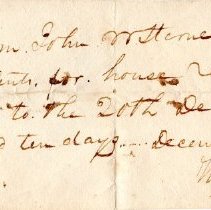 m. John W Sterne
for house
to the 20th De
d ten days.... Decem